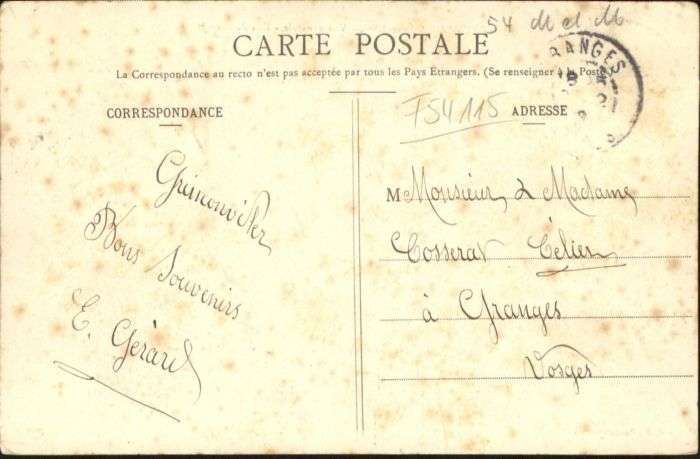 54 M et M
CARTE POSTALE
La Correspondance au recto n'est pas acceptée par tous les Pays Étrangers. (Se renseigner à la Poste
CORRESPONDANCE
F54115
ADRESSE
RANGES
Grimonviller
Bons Souvenirs
E. Gérard
M Monsieur & Madame
Cosserat Célien
à Granges
Vosges